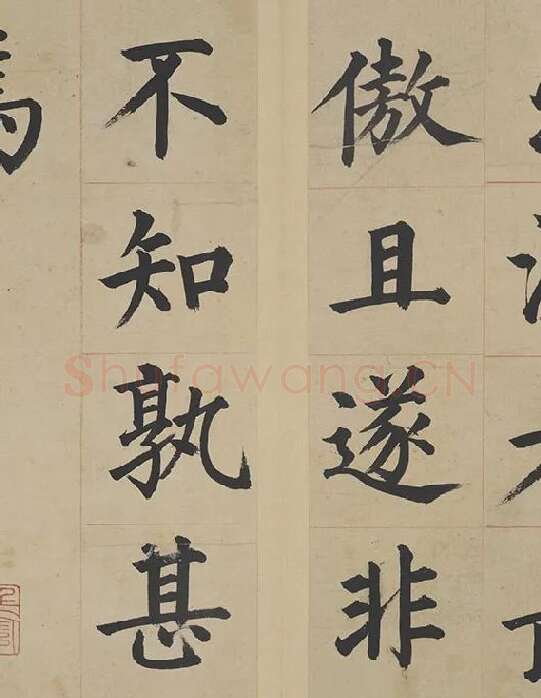 傲且遂非
不知孰甚
焉
Shufawang.CN